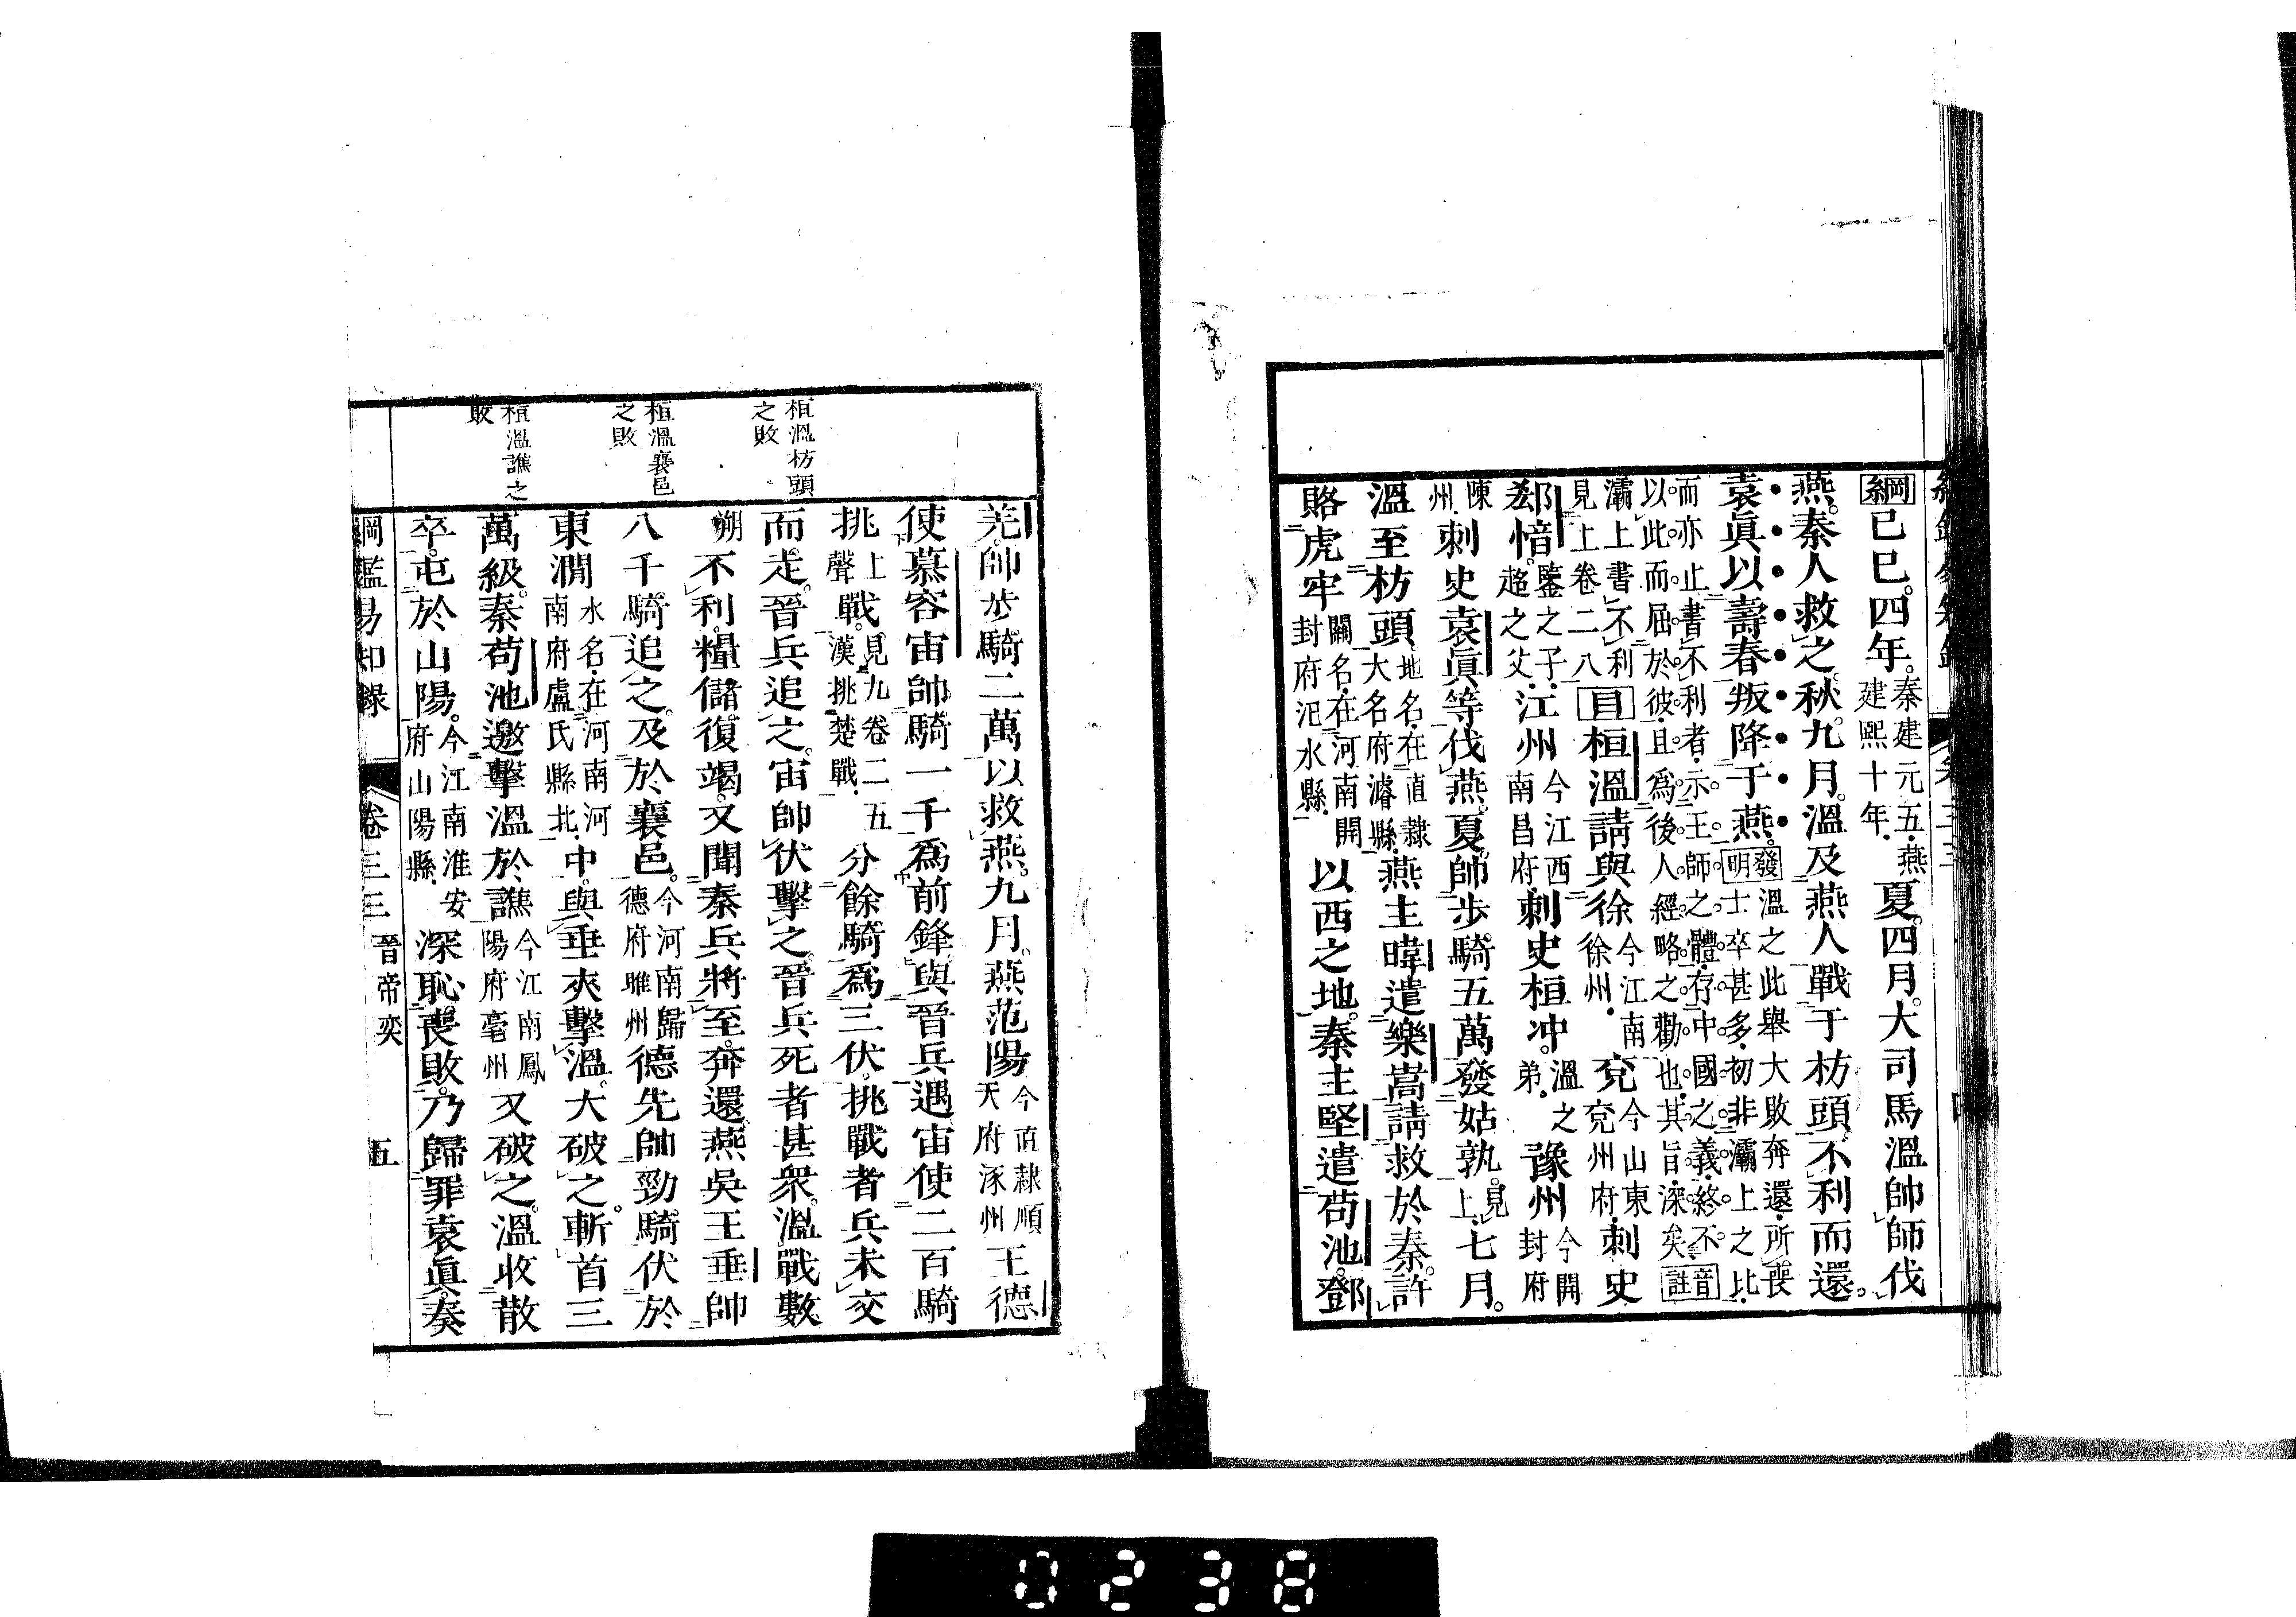 綱己巳。四年。秦建元五.燕建熙十年.夏。四月。大司馬溫帥師伐
燕。秦人救之。秋。九月。溫及燕人戰于枋頭。不利而還。
袁眞以壽春叛降于燕。發明溫之此舉大敗奔還.所喪士卒甚多.初非灞上之比.
而亦止書不利者.示王師之體.存中國之義.終不以此而屈於彼.且爲後人經略之勸也.其旨深矣.音註
灞上書不利見上卷二八目桓溫請與徐今江南徐州.兗今山東兗州府.刺史
郄愔。鑒之子.超之父.江州今江西南昌府.刺史桓冲。溫之弟.豫州今開封府
陳州.刺史袁眞等伐燕。夏。帥步騎五萬發姑孰。見上.七月。
溫至枋頭。地名.在直隸大名府濬縣.燕主暐遣樂嵩請救於秦。許
賂虎牢關名.在河南開封府汜水縣.以西之地。秦主堅遣苟池。鄧
羌。帥步騎二萬以救燕。九月。燕范陽今直隸順天府涿州王德
使慕容宙帥騎一千爲前鋒。與晉兵遇。宙使二百騎
挑上聲戰。見九卷二五漢挑楚戰.分餘騎爲三伏。挑戰者兵未交
而走。晉兵追之。宙帥伏擊之。晉兵死者甚衆。溫戰數
朔不利。糧儲復竭。又聞秦兵將至。奔還。燕吳王垂帥
八千騎追之。及於襄邑。今河南歸德府睢州德先帥勁騎伏於
東澗水名.在河南河南府盧氏縣北.中。與垂夾擊溫。大破之。斬首三
萬級。秦苟池邀擊溫於譙今江南鳳陽府亳州又破之。溫收散
卒。屯於山陽。今江南淮安府山陽縣.深恥喪敗。乃歸罪袁眞。奏
桓溫枋頭之敗
桓溫襄邑之敗
桓溫譙之敗
綱鑑易知錄 卷三三 晉帝奕 五
0238